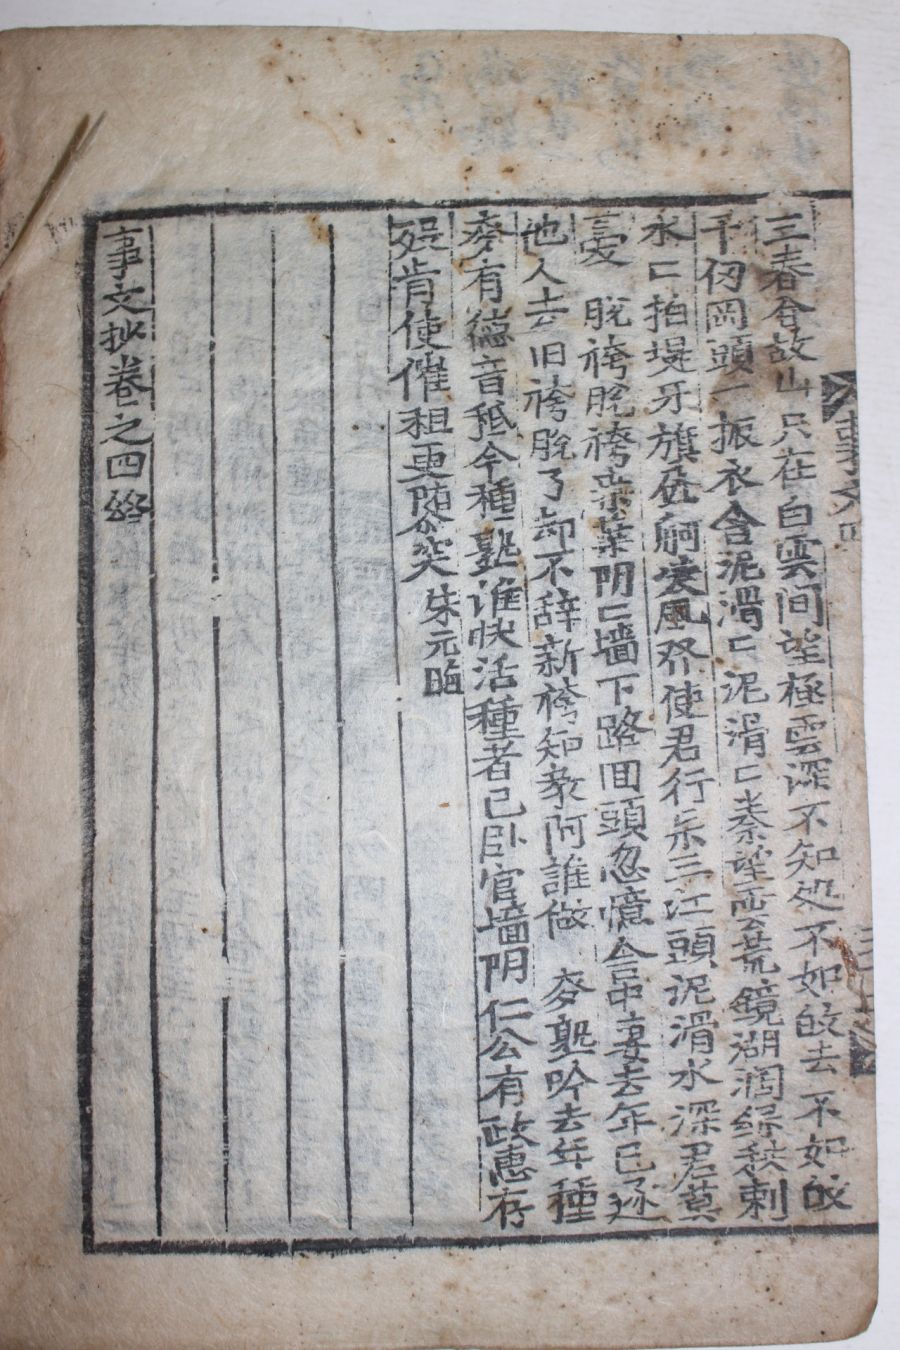 事文四
三春含故山只在白雲間望極雲深不知処不如皈去不如皈
千仞岡頭一振衣含泥滑匕泥滑匕秦望雲荒鏡湖濶綠秧刺
水匕拍堤牙旗舸凌風発使君行乐三江頭泥滑水深君莫
憂 脫袴脫袴桒葉阴匕墻下路回頭忽憶舍中妻去年已逐
他人去旧袴脫了却不辞新袴知教阿誰做 麥熟吟去年種
麥有德音秪今種熟谁快活種者已卧官墻阴仁公有政惠存
歿肯使催租更突 朱元晦
事文抄卷之四終